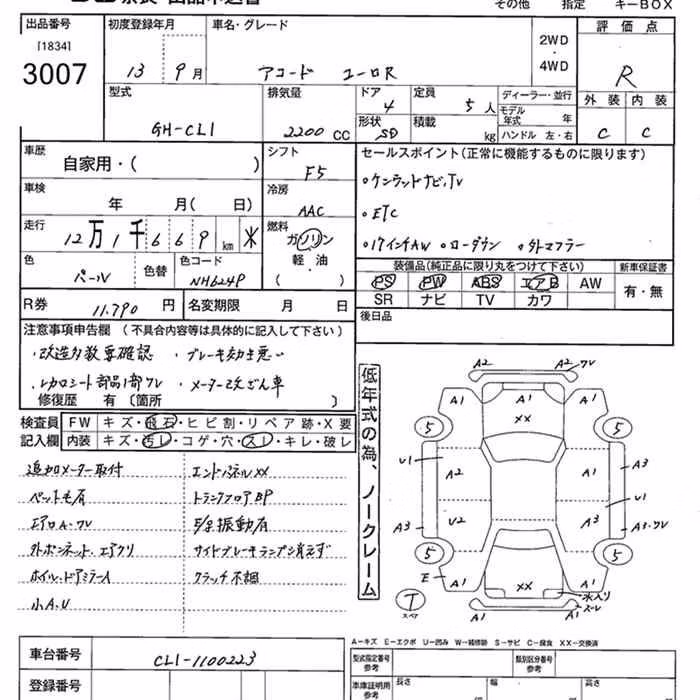 その他 指定 キーBOX
出品番号 初度登録年月 車名・グレード 評価点
[1834]
3007
13 9月 アコード ユーロR 2WD ・ 4WD R
型式 排気量 ドア 定員 ディーラー・並行 外装 内装
4 5人 モデル年式 年
GH-CL1 2200 CC 形状 SD 積載 kg ハンドル 左・右 C C
車歴 シフト セールスポイント(正常に機能するものに限ります)
自家用・( ) F5
・ケンウッドナビ,TV
車検 冷房
年 月( 日) AAC
・ETC
走行 燃料
12万1千669km ※ ガソリン
・17インチAW ・ローダウン ・外マフラー
色 色替 色コード 軽・油
パール NH624P ( )
装備品(純正品に限り丸をつけて下さい) 新車保証書
PS PW ABS エアB AW 有・無
SR ナビ TV カワ
R券 11,790円 名変期限 月 日
後日品
注意事項申告欄 (不具合内容等は具体的に記入して下さい)
・改造多数要確認 ・ブレーキ効き悪い
・レカロシート部品1部ワレ ・メーター改ざん車
修復歴 有〔箇所 〕
検査員記入欄
FW キズ・飛石・ヒビ割・リペア跡・X要
内装 キズ・汚レ・コゲ・穴・スレ・キレ・破レ
追加メーター取付 エンドパネルXX
ペット毛有 トランクフロアBP
エアロA・ワレ 5速振動有
外ボンネット・エアクリ サイドブレーキランプ消えず
ホイル・ドアミラーA クラッチ不調
小A,U
低年式の為、ノークレーム
A2 A2 ワレ
A1 A1 A1
XX
5 5
U1 A2 A1 A3
U1
A3 U2 A3 A3・ワレ
5 5
E A1 XX A1 水入り
スレ
T
スペア
A1 A1
A-キズ E-エクボ U-凹み W-補修跡 S-サビ C-腐食 XX-交換済
車台番号 CL1-1100223
登録番号
型式指定番号 参考 類別区分番号 参考
車庫証明用 参考 長さ 幅 高さ